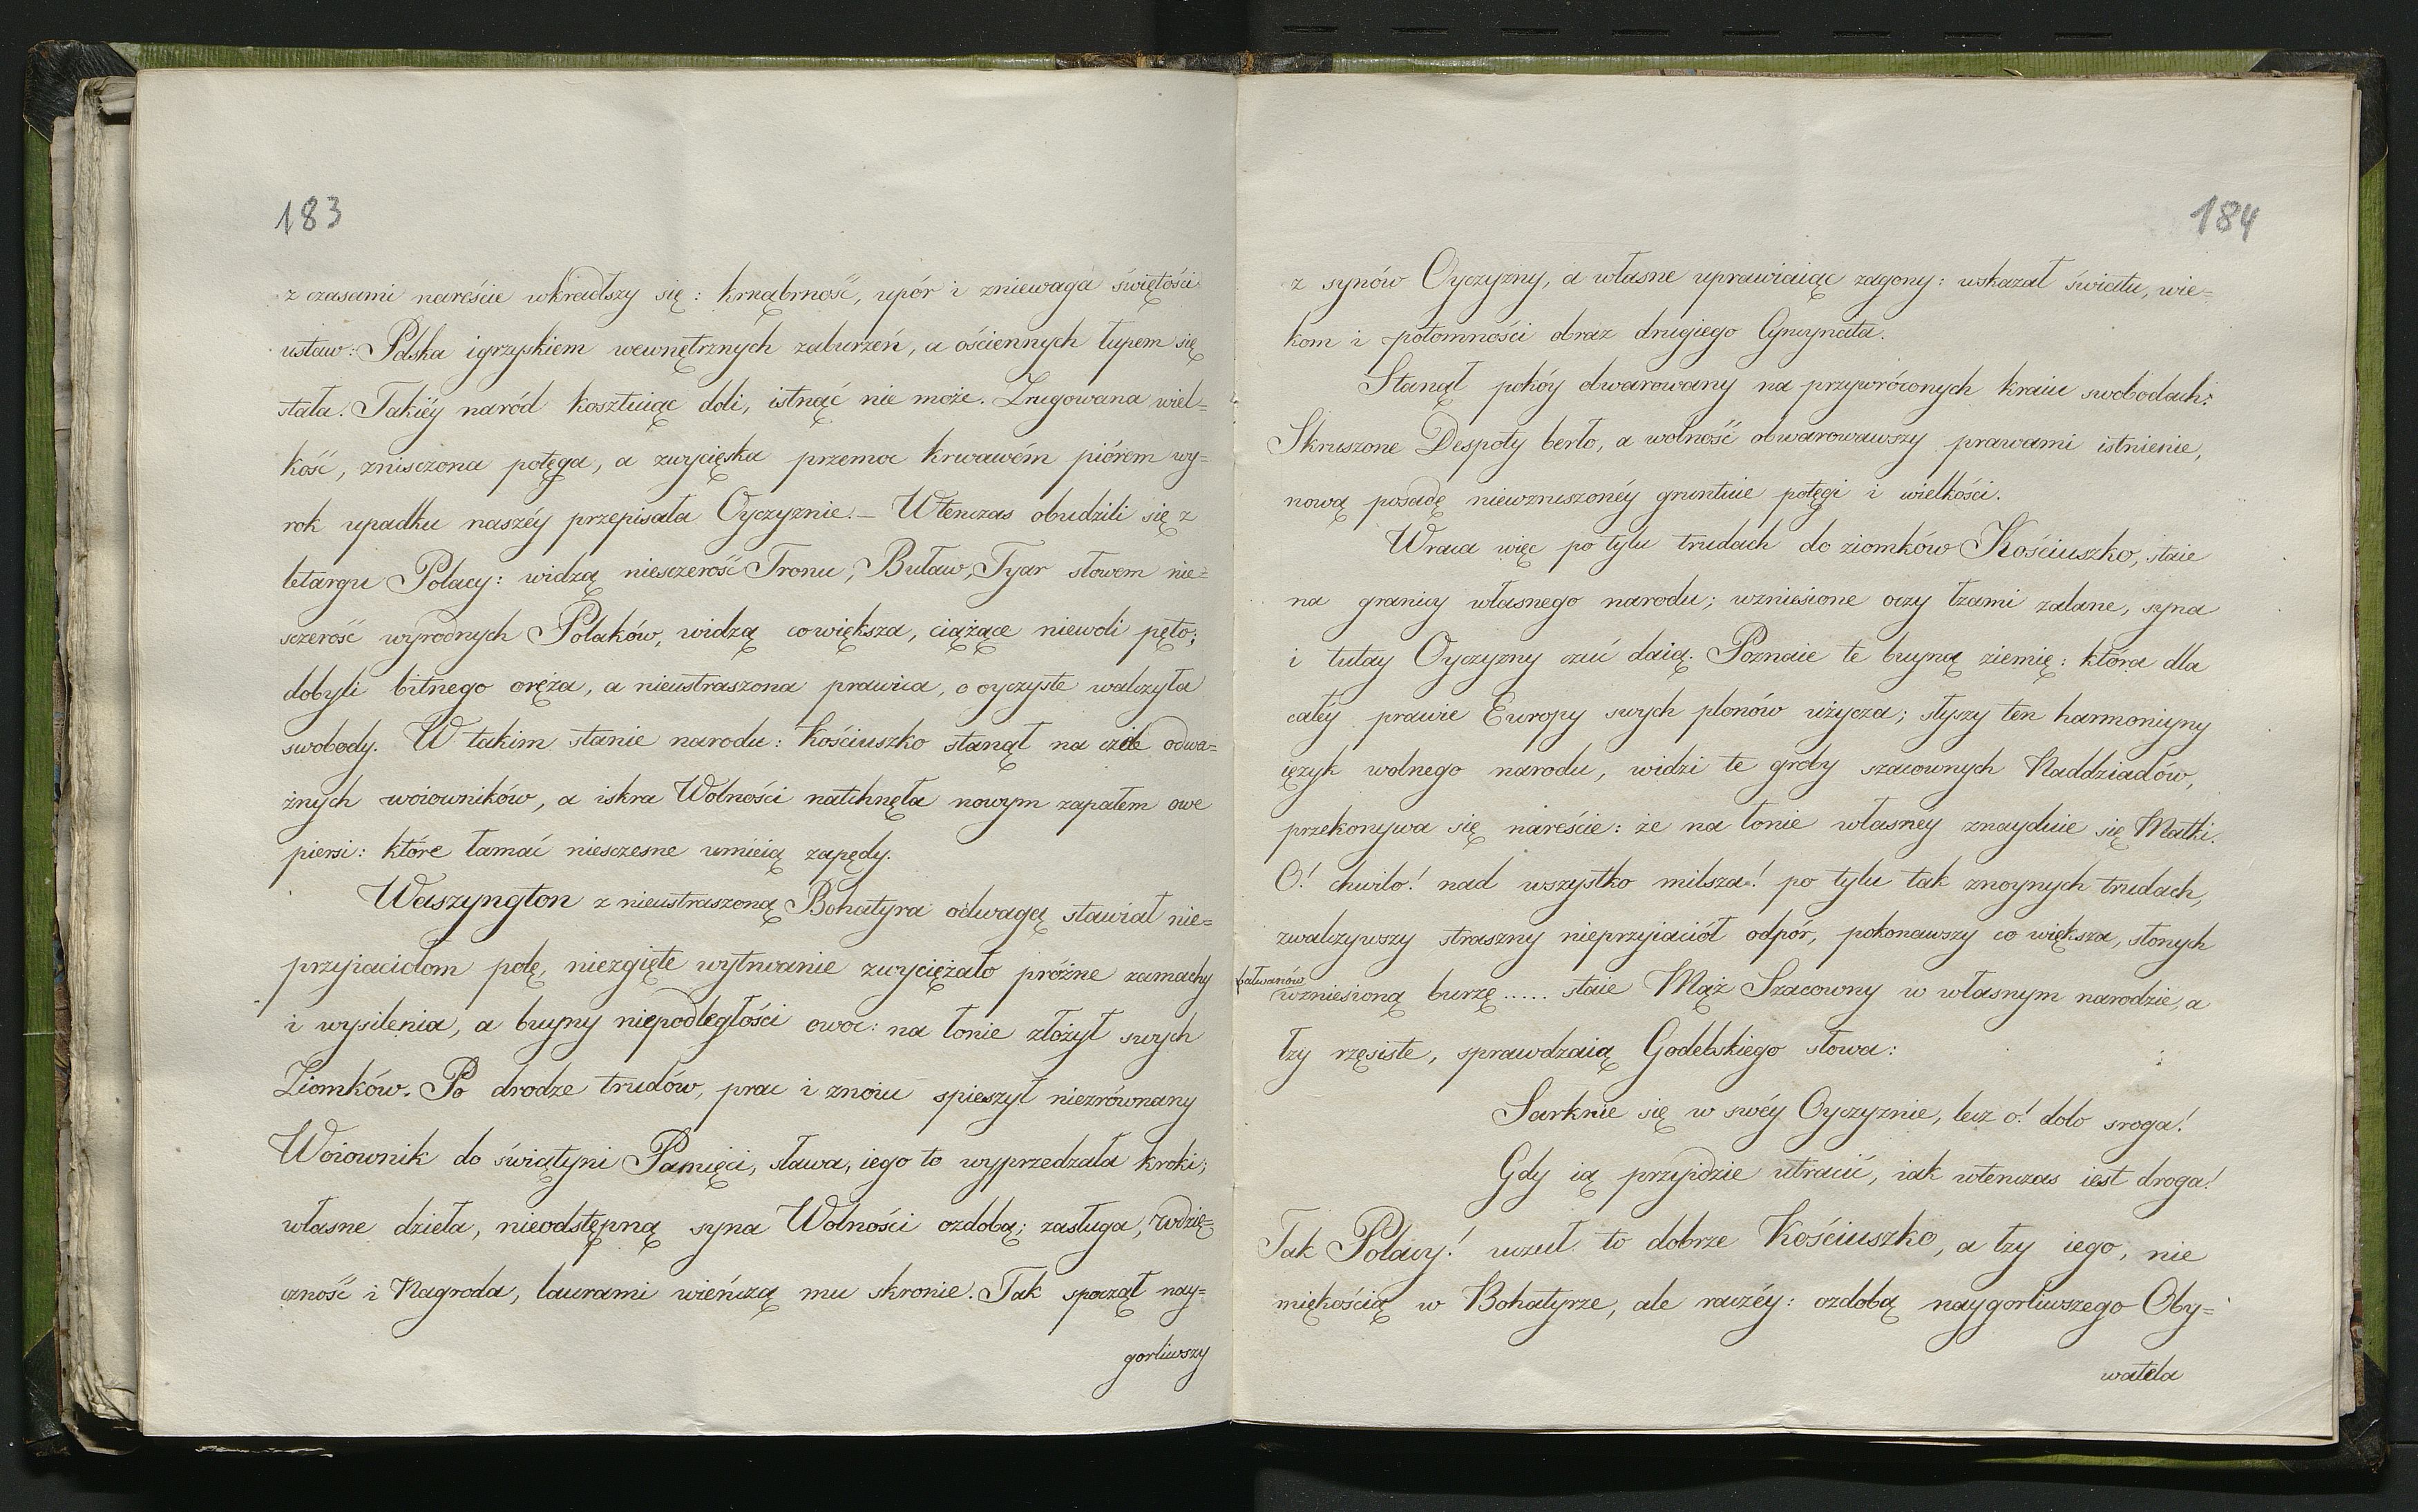 183
z czasami nareście wkradłszy się: krnąbrność, upór i zniewaga świętości
ustaw: Polska igrzyskiem wewnętrznych zaburzeń, a ościennych łupem się
stała. Takiéy naród kosztuiąc doli, istnąć nie może. Zrugowana wiel=
kość, znisczona potęga, a zwycięska przemoc krwawém piórem wy=
rok upadku naszéy przepisała Oyczyznie. – Wtenczas obudzili się z
letargu Polacy: widzą niesczerość Tronu, Buław, Tyar słowem nie=
sczerość wyrodnych Polaków, widzą co większa, ciążące niewoli pęto;
dobyli bitnego oręża, a nieustraszona prawica, o oyczyste walczyła
swobody. W takim stanie narodu: Kościuszko stanął na czele odwa=
żnych woiowników, a iskra Wolności natchnęła nowym zapałem owe
piersi: które łamać niesczesne umieią zapędy.
Waszyngton z nieustraszoną Bohatyra odwagą stawiał nie=
przyiaciołom połę, niezgięte wytrwanie zwyciężało próżne zamachy
i wysilenia, a buyny niepodległości owoc: na łonie złożył swych
Ziomków. Po drodze trudów, prac i znoiu spieszył niezrównany
Woiownik do świątyni Pamięci, sława, iego to wyprzedzała kroki;
własne dzieła, nieodstępną syna Wolności ozdobą; zasługa, wdzię=
czność i Nagroda, laurami wieńczą mu skronie. Tak spoczął nay=
gorliwszy
184
z synów Oyczyzny, a własne uprawiaiąc zagony: wskazał światu, wie=
kom i potomności obraz drugiego Cyncynata.
Stanął pokóy obwarowany na przywróconych kraiu swobodach:
Skruszone Despoty berło, a wolność obwarowawszy prawami istnienie,
nową posadę niewzruszonéy gruntuie potęgi i wielkości.
Wraca więc po tylu trudach do ziomków Kościuszko, staie
na granicy własnego narodu; wzniesione oczy łzami zalane, syna
i tutay Oyczyzny czuć daią. Poznaie te buyną ziemię: która dla
całéy prawie Europy swych plonów użycza; słyszy ten harmoniyny
ięzyk wolnego narodu, widzi te groby szacownych Naddziadów,
przekonywa się nareście: że na łonie własney znayduie się Matki.
O! chwilo! nad wszystko milsza! po tylu tak znoynych trudach,
zwalczywszy straszny nieprzyiaciół odpór, pokonawszy co większa, słonych
bałwanów wzniesioną burzę..... staie Mąż Szacowny w własnym narodzie, a
łzy rzęsiste, sprawdzaią Godebskiego słowa:
Sarknie się w swéy Oyczyznie, lecz o! dolo sroga!
Gdy ią przyidzie utracić, iak wtenczas iest droga!
Tak Polacy! uczuł to dobrze Kościuszko, a łzy iego, nie
miękością w Bohatyrze, ale raczéy: ozdobą naygorliwszego Oby=
watela